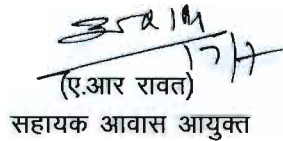 (ए.आर रावत)
सहायक आवास आयुक्त